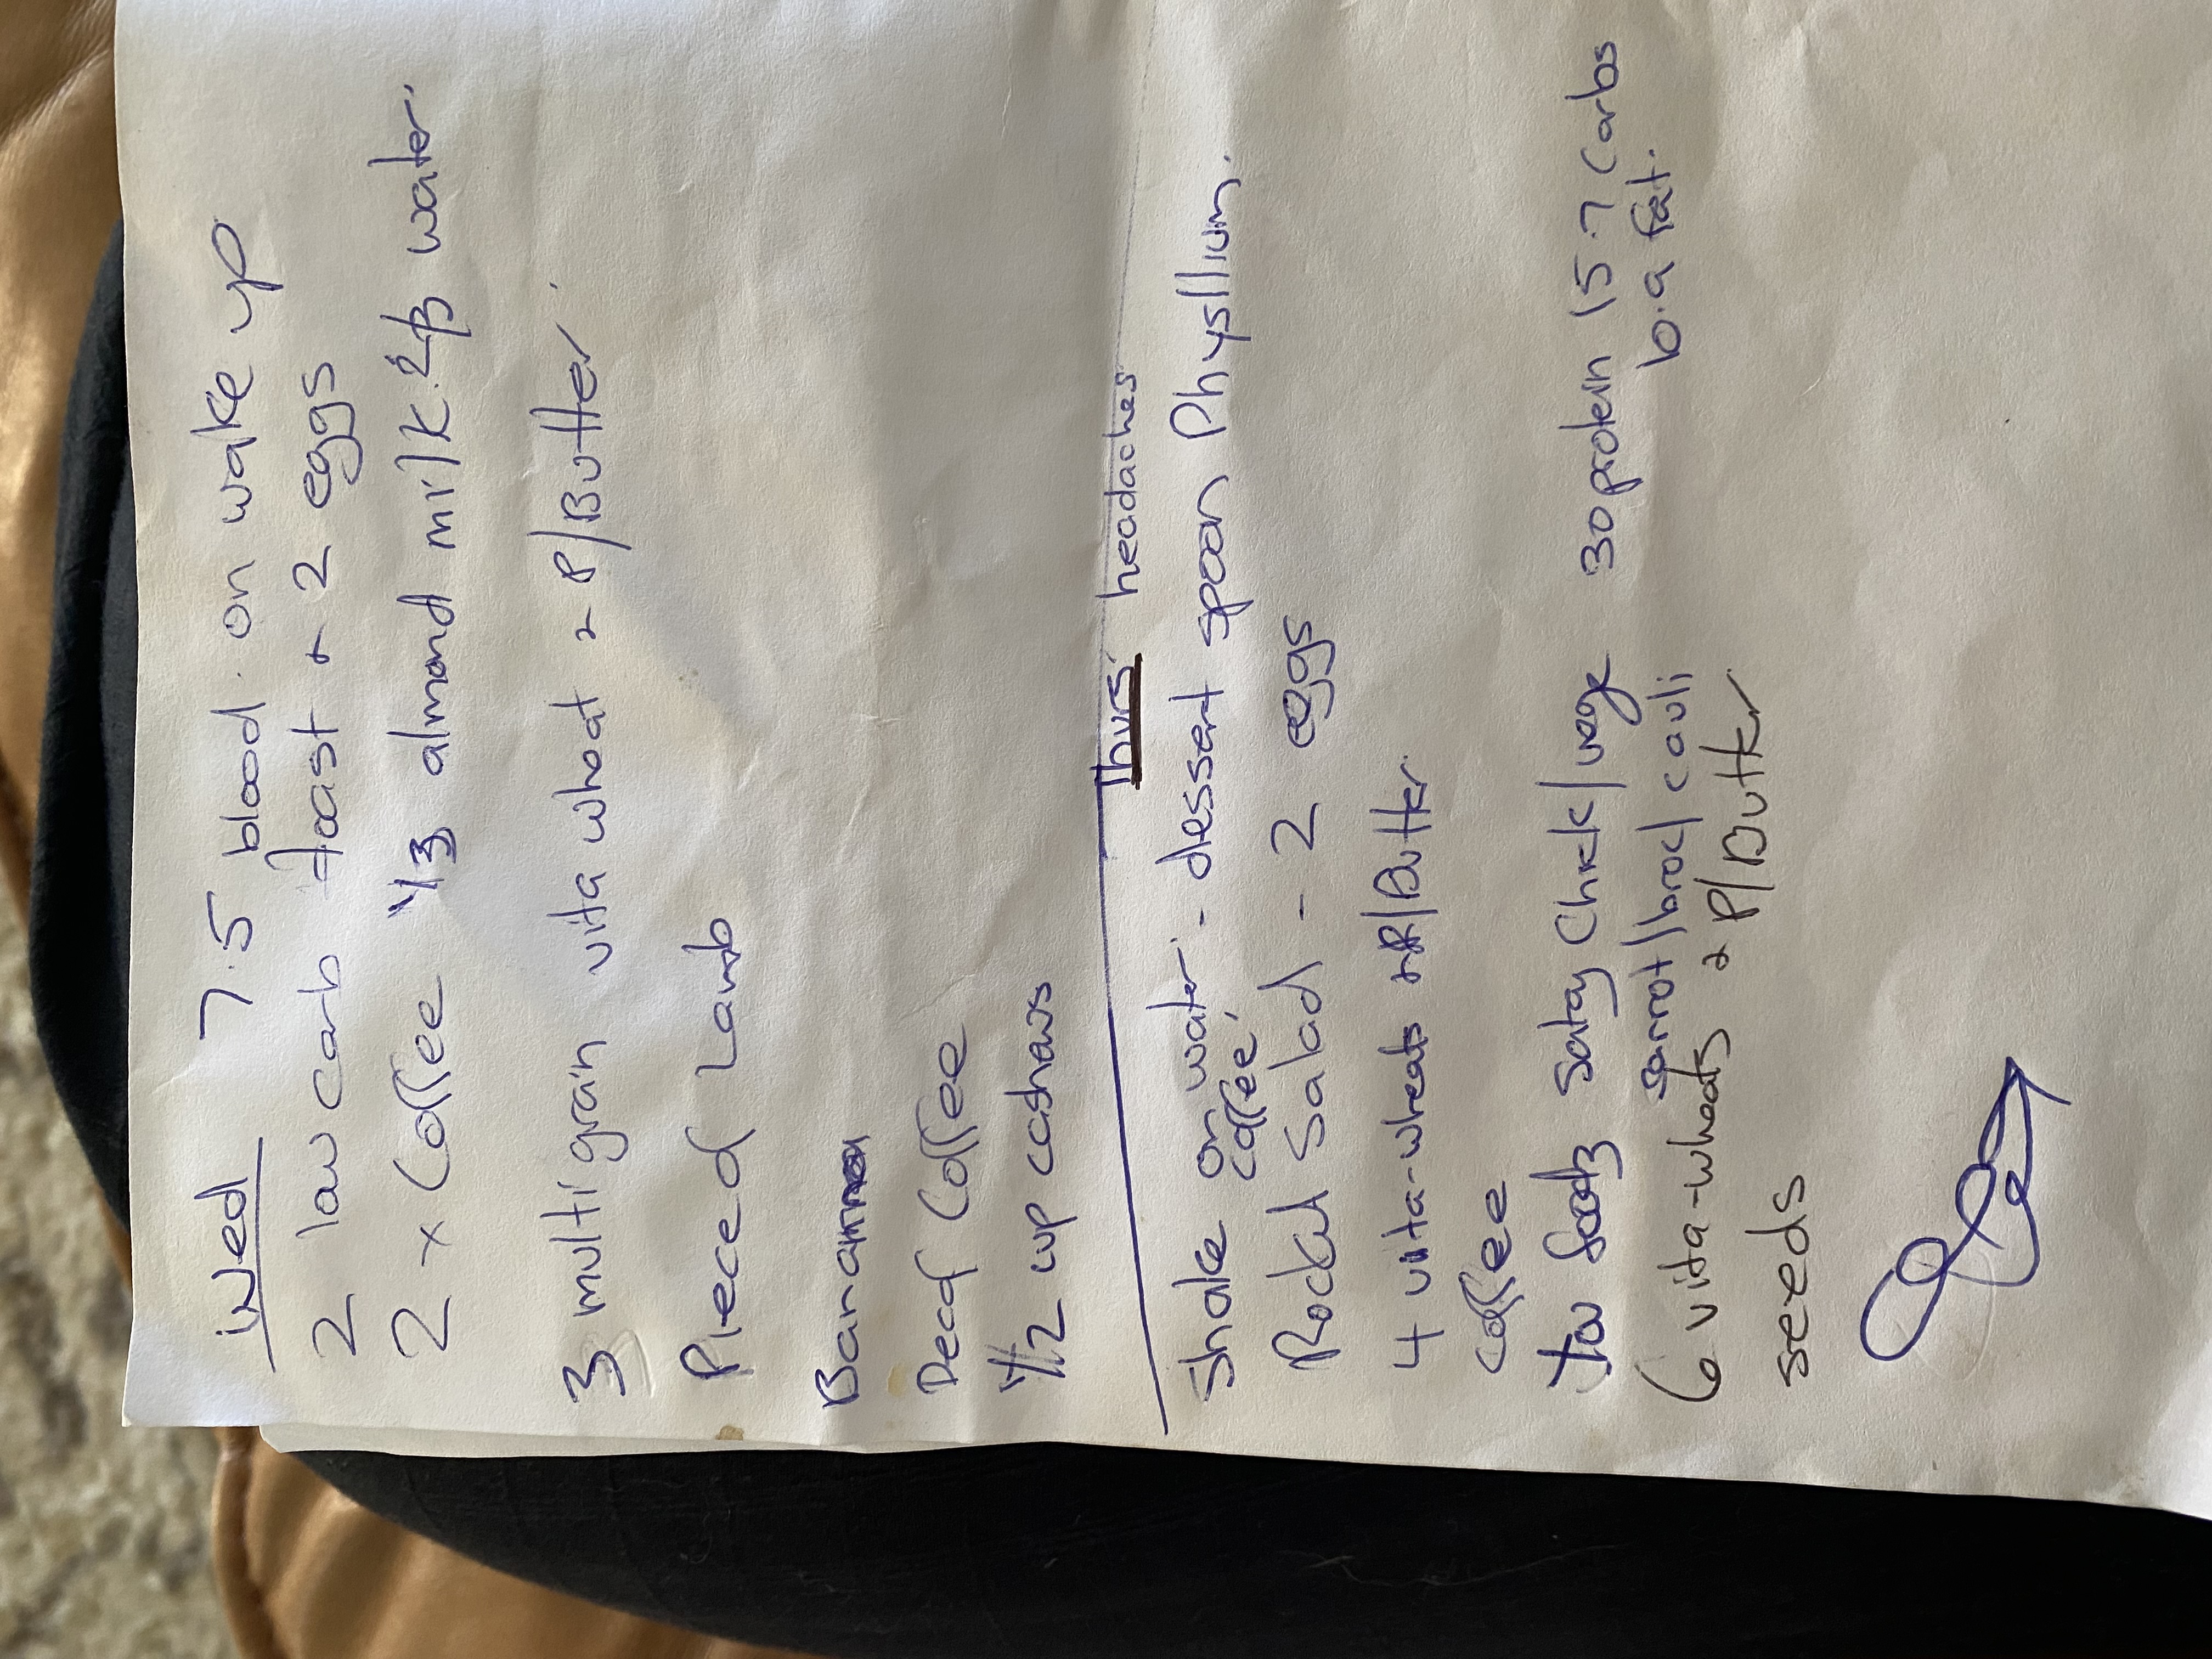 Wed 7.5 blood. on wake up
2 low carb toast + 2 eggs
2 x Coffee 1/3 almond milk. 2/3 water.
3 multi grain vita wheat + P/Butter.
Piece of Lamb
Banana
Decaf Coffee
1/2 cup cashews
Thurs. headaches
Shake on water. - dessert spoon Physllium.
coffee.
Rocket Salad - 2 eggs
4 vita-wheats + P/Butter.
coffee
satay Chick/vege 30 protein 15.7 Carbs
carrot/broc/cauli 6.9 fat.
6 vita-wheats + P/Butter
seeds